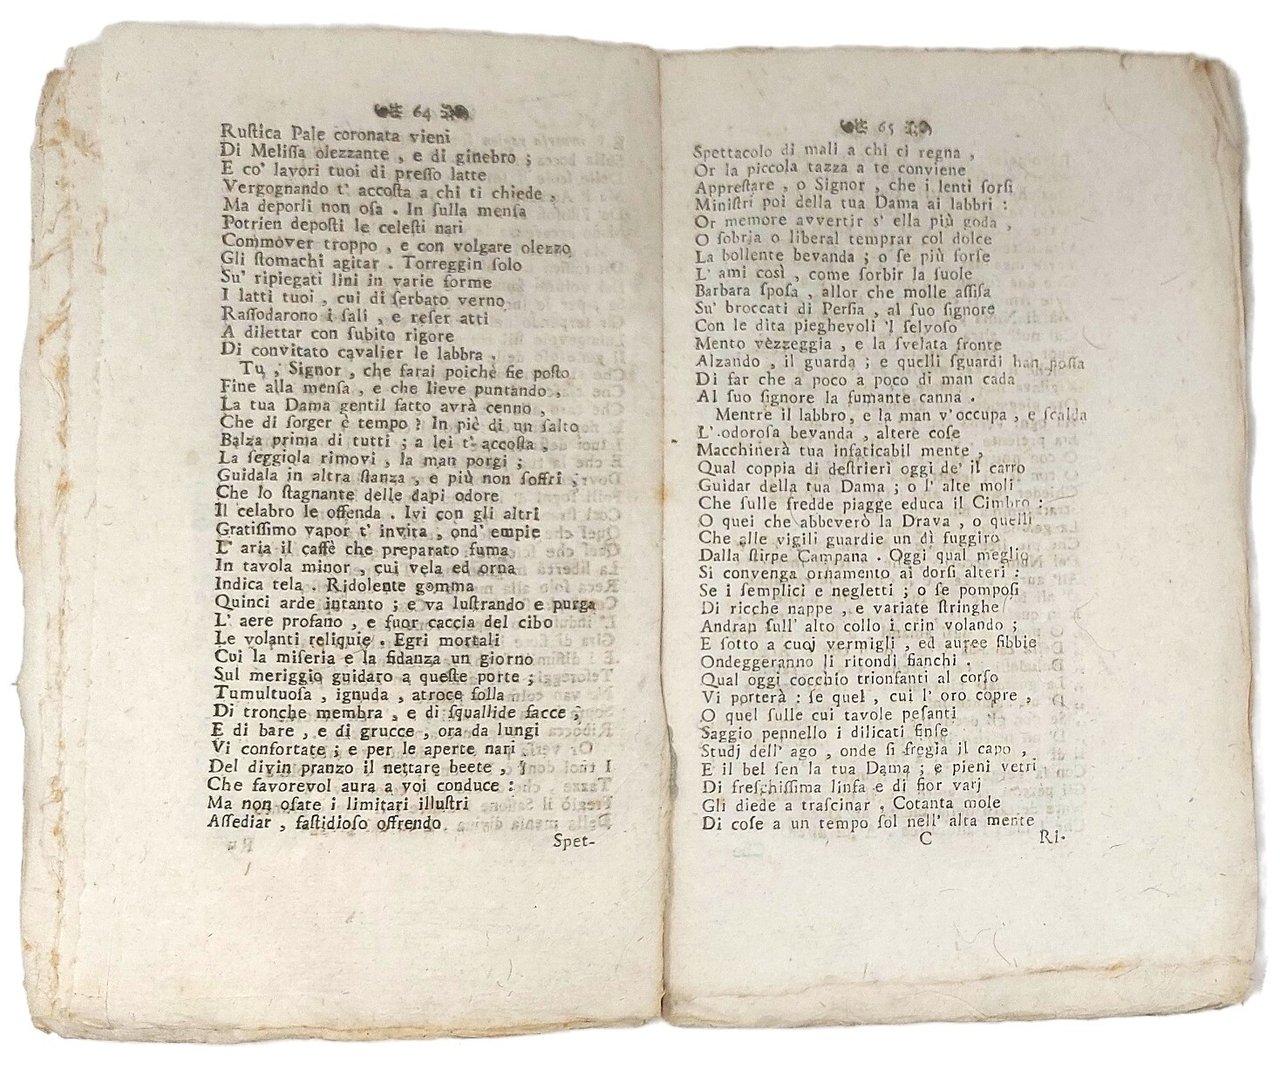 64
Ruſtica Pale coronata vieni
Di Meliſſa olezzante , e di ginebro ;
E co' lavori tuoi di preſſo latte
Vergognando t' accoſta a chi ti chiede ,
Ma deporli non oſa . In ſulla menſa
Potrien depoſti le celeſti nari
Commover troppo , e con volgare olezzo
Gli ſtomachi agitar . Torreggin ſolo
Su' ripiegati lini in varie forme
I latti tuoi , cui di ſerbato verno
Raſſodarono i ſali , e reſer atti
A dilettar con ſubito rigore
Di convitato cavalier le labbra .
Tu , Signor , che farai poichè fie poſto
Fine alla menſa , e che lieve puntando ,
La tua Dama gentil fatto avrà cenno ,
Che di ſorger è tempo ? In piè di un ſalto
Balza prima di tutti ; a lei t' accoſta ,
La ſeggiola rimovi , la man porgi ;
Guidala in altra ſtanza , e più non ſoffri ,
Che lo ſtagnante delle dapi odore
Il celabro le offenda . Ivi con gli altri
Gratiſſimo vapor t' invita , ond' empie
L' aria il caffè che preparato fuma
In tavola minor , cui vela ed orna
Indica tela . Ridolente gomma
Quinci arde intanto ; e va luſtrando e purga
L' aere profano , e fuor caccia del cibo
Le volanti reliquie . Egri mortali
Cui la miſeria e la fidanza un giorno
Sul meriggio guidaro a queſte porte ;
Tumultuoſa , ignuda , atroce folla
Di tronche membra , e di ſquallide facce ,
E di bare , e di grucce , ora da lungi
Vi confortate ; e per le aperte nari
Del divin pranzo il nettare beete ,
Che favorevol aura a voi conduce :
Ma non oſate i limitari illuſtri
Aſſediar , faſtidioſo offrendo
Spet-
65
Spettacolo di mali a chi ci regna ,
Or la piccola tazza a te conviene
Appreſtare , o Signor , che i lenti ſorſi
Miniſtri poi della tua Dama ai labbri :
Or memore avvertir s' ella più goda ,
O ſobria o liberal temprar col dolce
La bollente bevanda ; o ſe più forſe
L' ami così , come ſorbir la ſuole
Barbara ſpoſa , allor che molle aſſiſa
Su' broccati di Perſia , al ſuo ſignore
Con le dita pieghevoli 'l ſelvoſo
Mento vezzeggia , e la ſvelata fronte
Alzando , il guarda ; e quelli ſguardi han poſſa
Di far che a poco a poco di man cada
Al ſuo ſignore la fumante canna .
Mentre il labbro, e la man v'occupa , e ſcalda
L' odoroſa bevanda , altere coſe
Macchinerà tua infaticabil mente ,
Qual coppia di deſtrieri oggi de' il carro
Guidar della tua Dama ; o l' alte moli
Che ſulle fredde piagge educa il Cimbro :
O quei che abbeverò la Drava , o quelli
Che alle vigili guardie un dì fuggiro
Dalla ſtirpe Campana . Oggi qual meglio
Si convenga ornamento ai dorſi alteri :
Se i ſemplici e negletti ; o ſe pompoſi
Di ricche nappe , e variate ſtringhe
Andran ſull' alto collo i crin volando ;
E ſotto a cuoj vermigli , ed auree fibbie
Ondeggeranno li ritondi fianchi .
Qual oggi cocchio trionfanti al corſo
Vi porterà : ſe quel , cui l' oro copre ,
O quel ſulle cui tavole peſanti
Saggio pennello i dilicati finſe
Studj dell' ago , onde ſi fregia il capo ,
E il bel ſen la tua Dama ; e pieni vetri
Di freſchiſſima linfa e di fior varj
Gli diede a traſcinar , Cotanta mole
Di coſe a un tempo ſol nell' alta mente
C Ri-